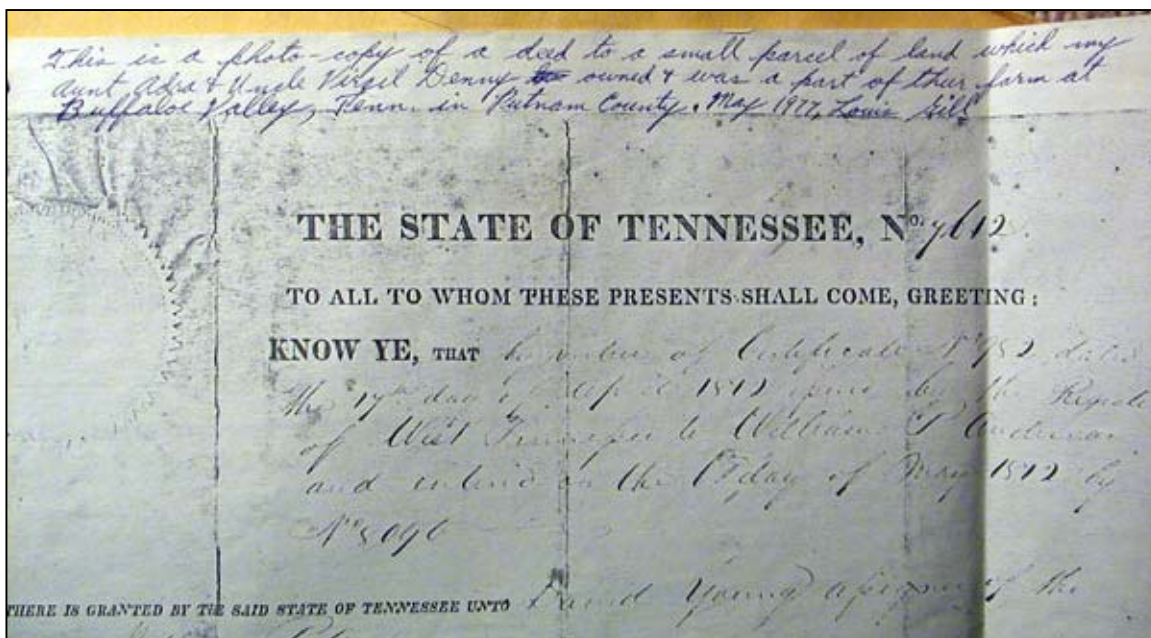 This is a photo-copy of a deed to a small parcel of land which my
Aunt Adra & Uncle Virgil Denny owned & was a part of their farm at
Buffaloe Valley, Tenn. in Putnam County. May 1977, Louis
THE STATE OF TENNESSEE, No. 7612.
TO ALL TO WHOM THESE PRESENTS SHALL COME, GREETING:
KNOW YE, THAT by virtue of Certificate No 982 dated
the 17th day of April 1812 by the
of West Tennessee to William P Anderson
and entered on the day of May 1812 by
No
THERE IS GRANTED BY THE SAID STATE OF TENNESSEE UNTO David Young assignee of the